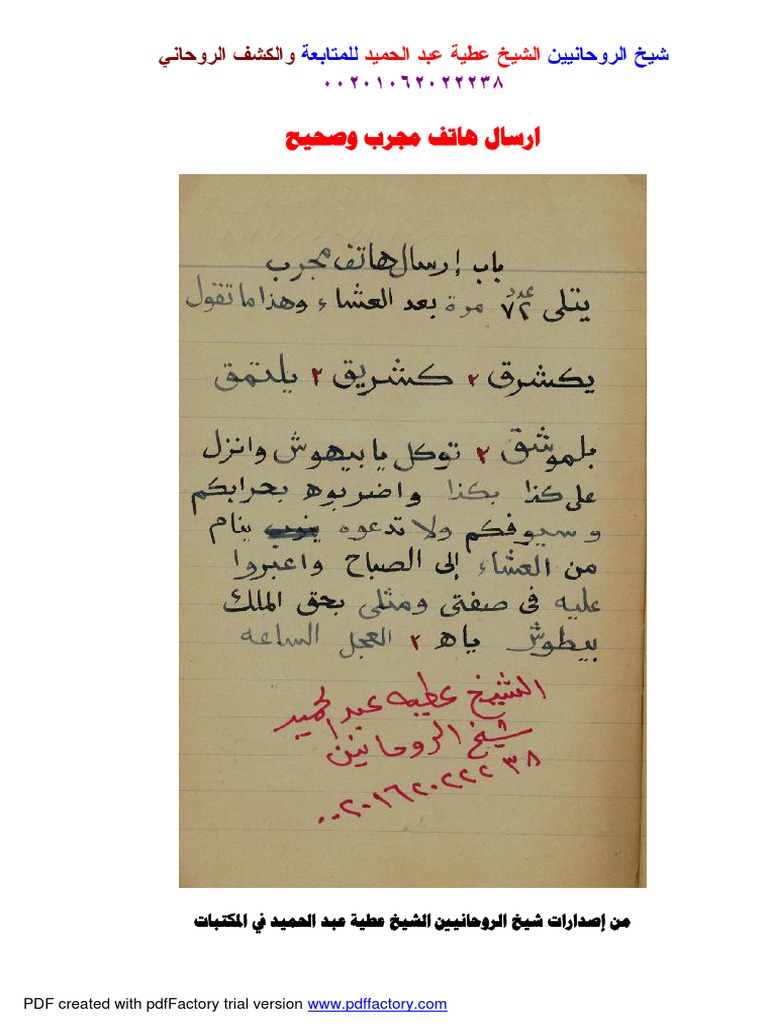 شيخ الروحانيين الشيخ عطية عبد الحميد للمتابعة والكشف الروحاني
٠٠٢٠١٠٦٢٠٢٢٢٣٨
ارسال هاتف مجرب وصحيح
باب إرسال هاتف مجرب
يتلى عدد ٧٢ مرة بعد العشاء وهذا ما تقول
يكشرق ٢ كشريق ٢ يلتمق
بلموشق ٢ توكل يا بيهوش وانزل
على كذا بكذا واضربوه بحرابكم
وسيوفكم ولا تدعوه ينام
من العشاء إلى الصباح واعبروا
عليه فى صفتى ومثلى بحق الملك
بيطوش ياه ٢ العجل الساعه
الشيخ عطيه عبد الحميد
شيخ الروحانيين
٠٠٢٠١٦٢٠٢٢٢٣٨
من إصدارات شيخ الروحانيين الشيخ عطية عبد الحميد في المكتبات
PDF created with pdfFactory trial version www.pdffactory.com